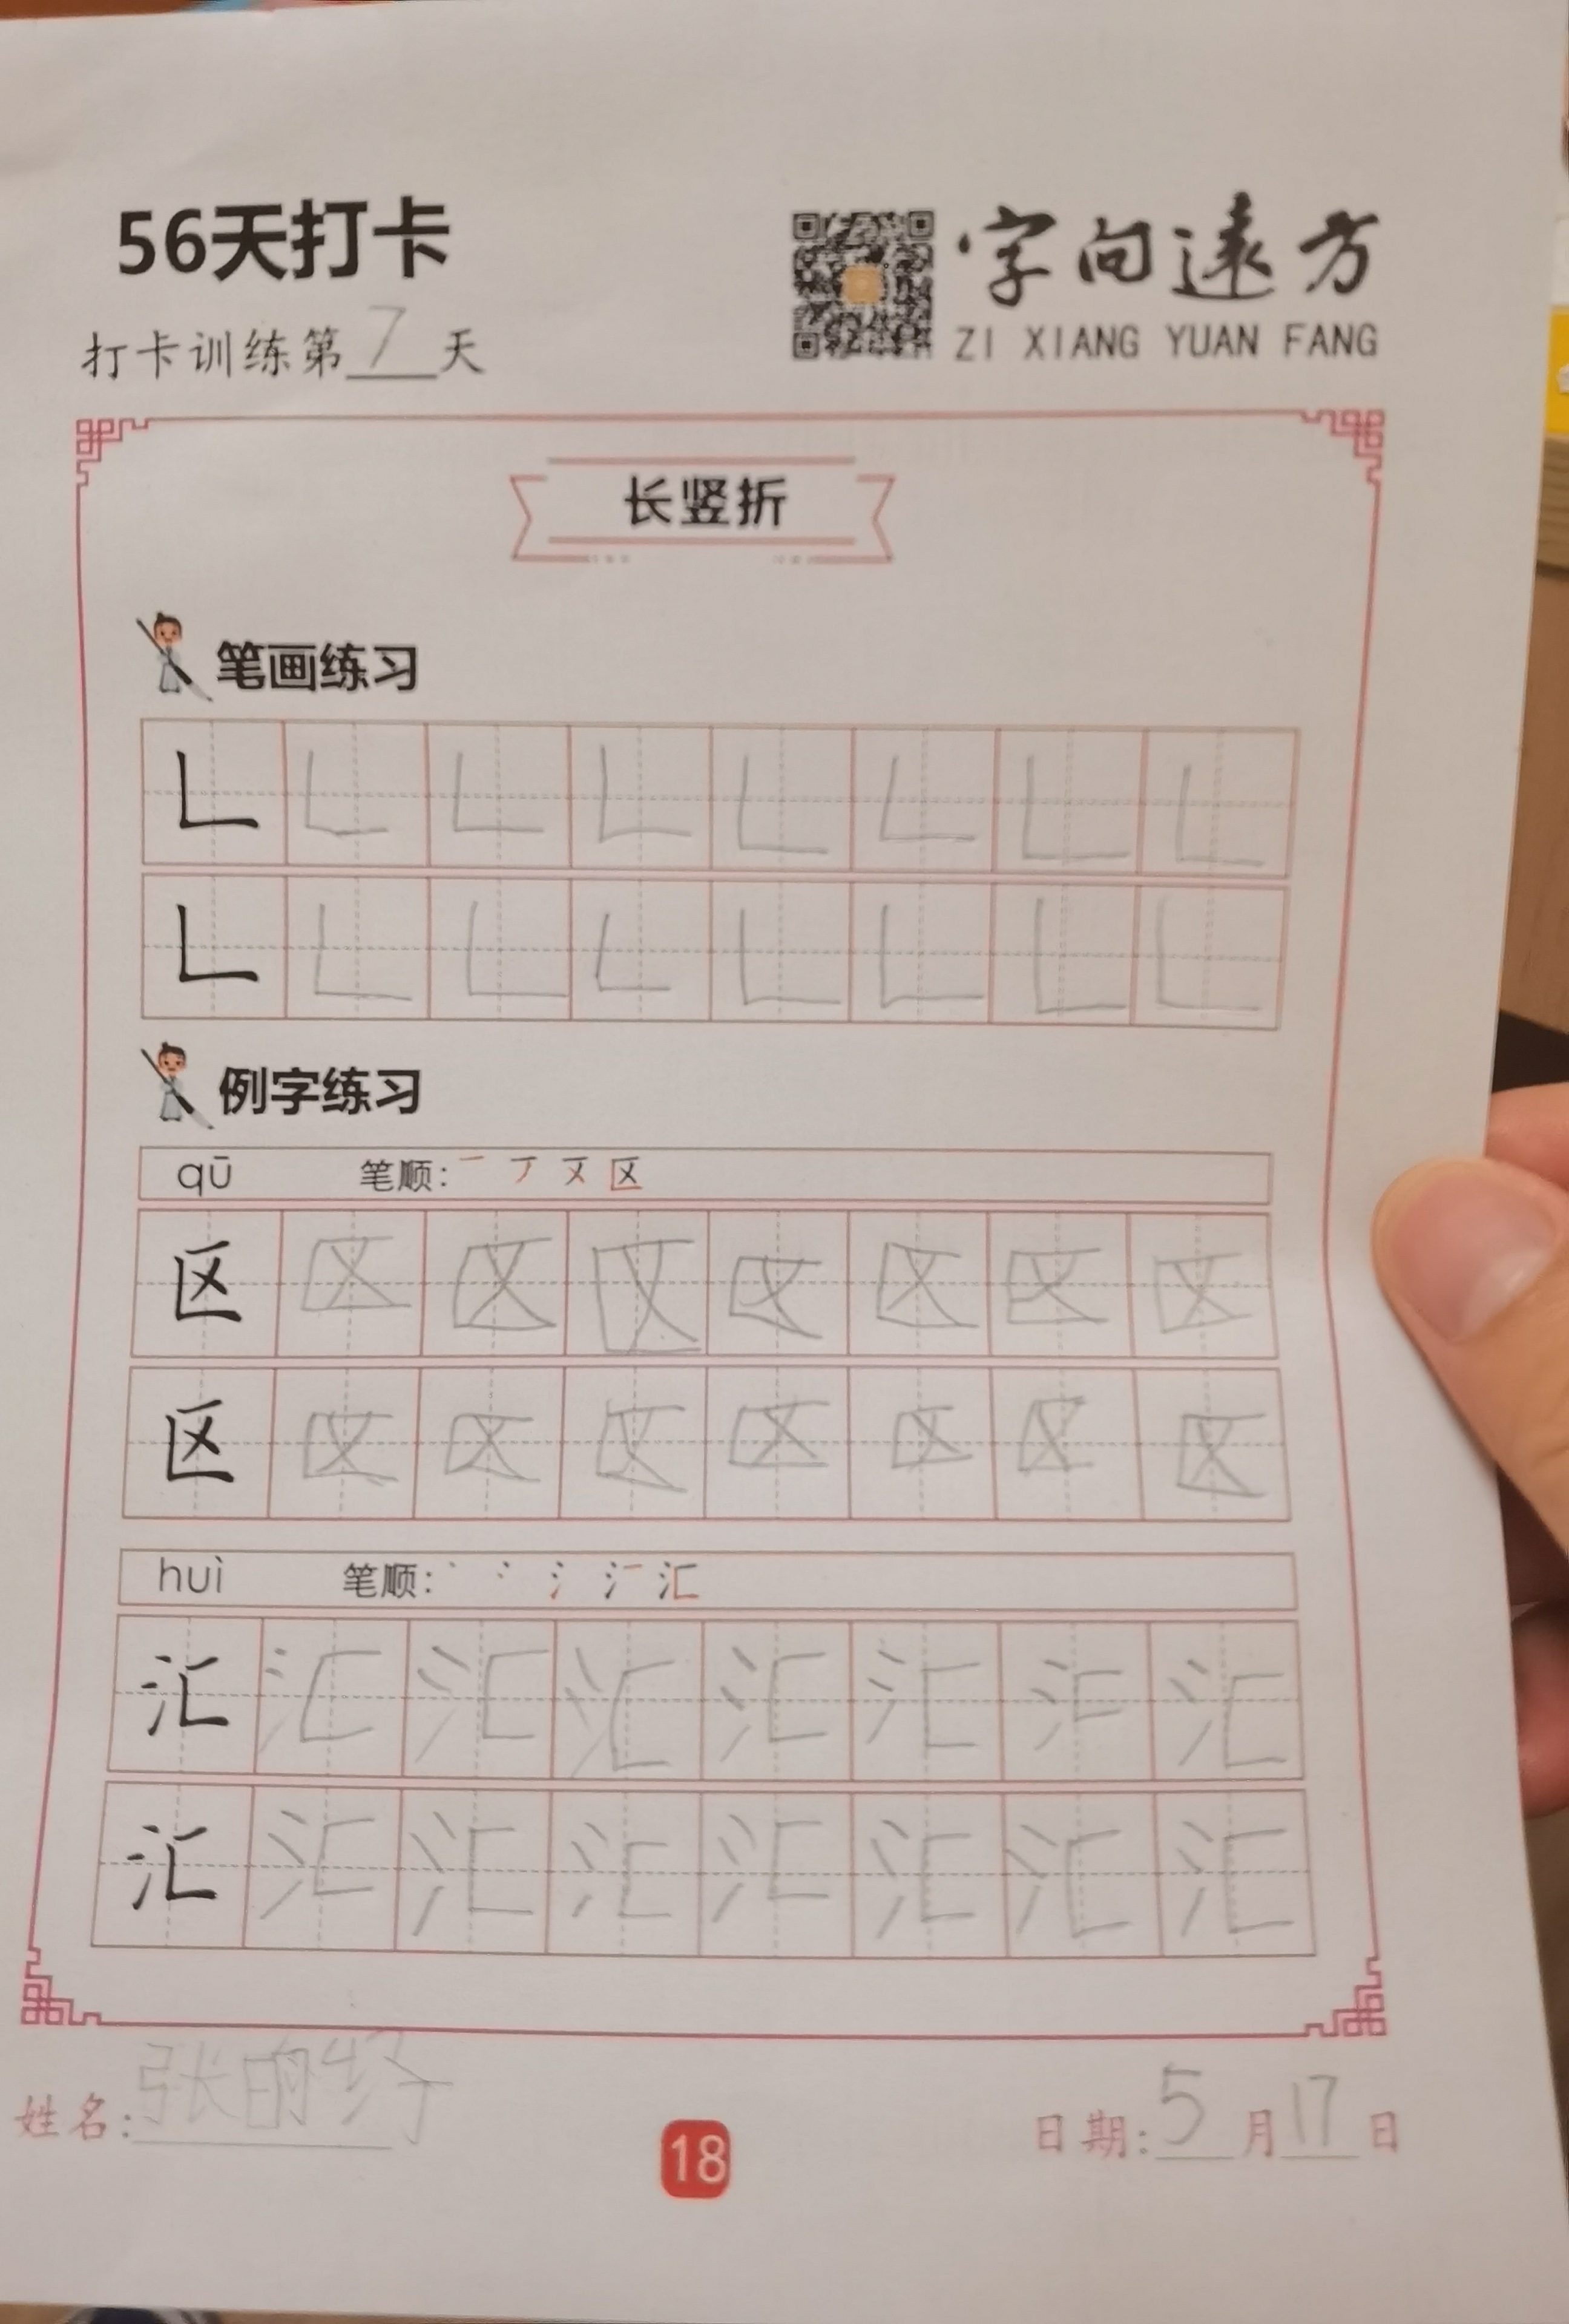 56天打卡
字向遠方
打卡训练第7天
ZI XIANG YUAN FANG
长竖折
笔画练习
𠃊 𠃊 𠃊 𠃊 𠃊 𠃊 𠃊 𠃊
𠃊 𠃊 𠃊 𠃊 𠃊 𠃊 𠃊 𠃊
例字练习
qū 笔顺: 一 丆 区
区 区 区 区 区 区 区 区
区 区 区 区 区 区 区 区
huì 笔顺: 丶 冫 氵 汇
汇 汇 汇 汇 汇 汇 汇 汇
汇 汇 汇 汇 汇 汇 汇 汇
姓名: 张
日期: 5月17日
18